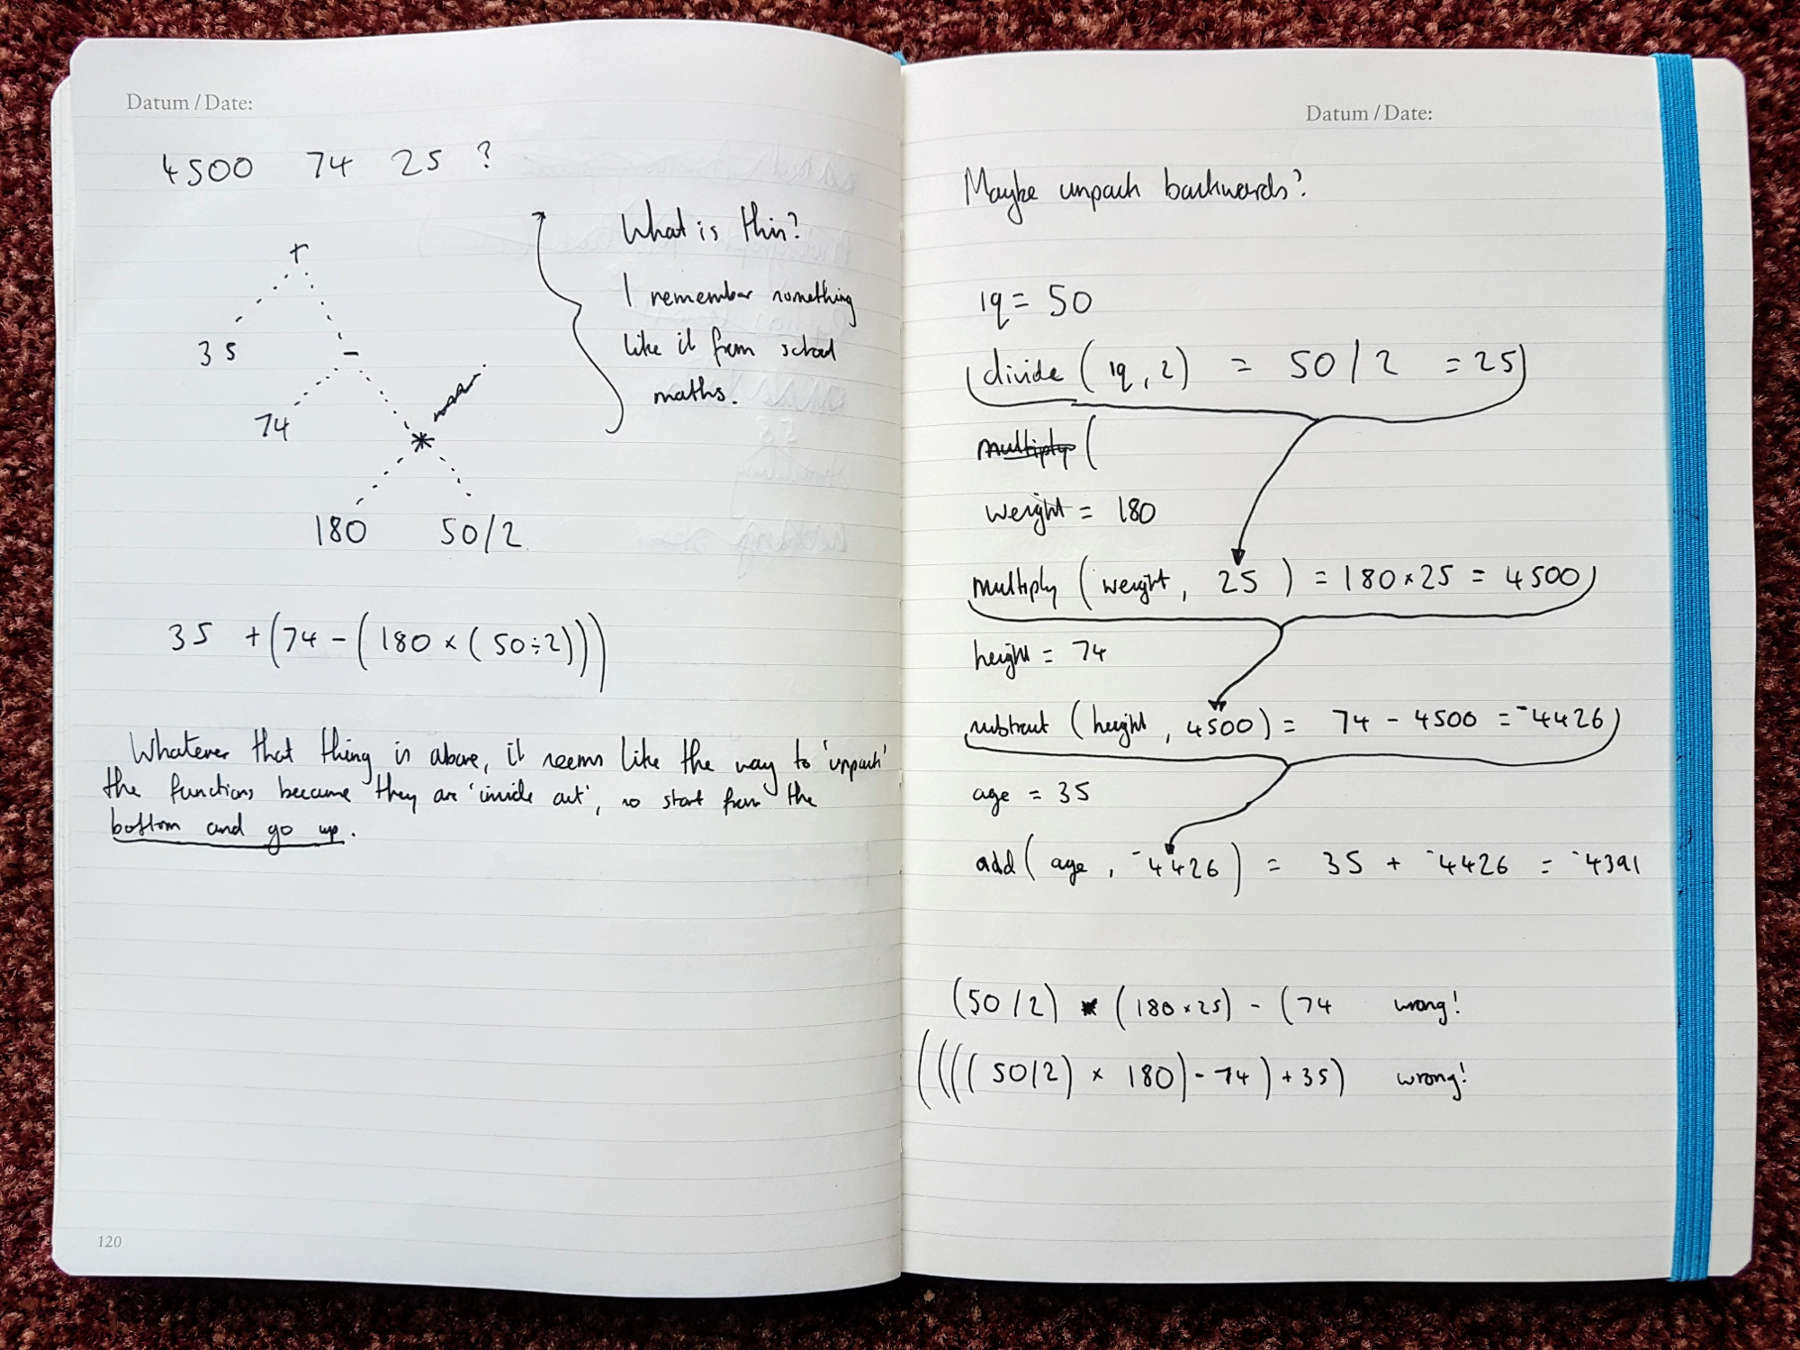 Datum / Date:
4500 74 25 ?
What is this?
I remember something
like it from school
maths.
+
35 -
74 *
180 50/2
35 + (74 - (180 × (50 ÷ 2)))
Whatever that thing is above, it seems like the way to 'unpack'
the functions because they are 'inside out', so start from the
bottom and go up.
120
Datum / Date:
Maybe unpack backwards?
iq = 50
divide (iq, 2) = 50/2 = 25
multiply (
weight = 180
multiply (weight, 25) = 180 × 25 = 4500
height = 74
subtract (height, 4500) = 74 - 4500 = -4426
age = 35
add (age, -4426) = 35 + -4426 = -4391
(50/2) * (180 × 25) - (74 wrong!
((((50/2) × 180) - 74) + 35) wrong!